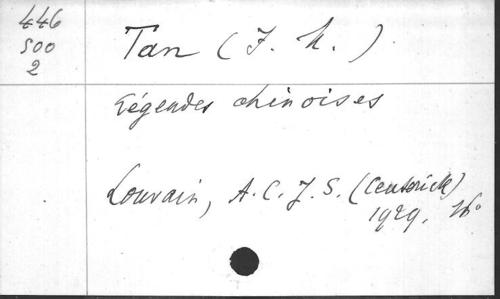 446
500
2
Tan (J. M.)
Légendes chinoises
Louvain, A.C.J.S. (Ceuterick)
1929, 16°